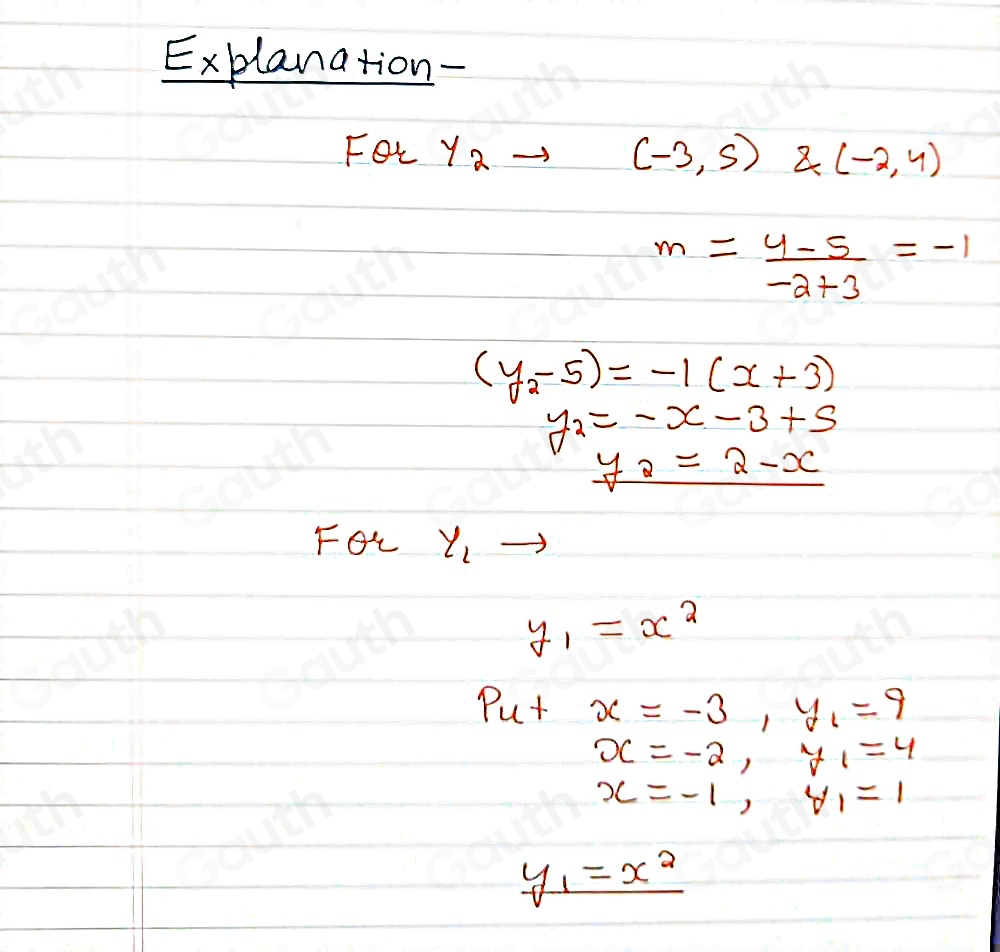 Explanation -
For Y₂ → (-3, 5) & (-2, 4)
m = (4-5)/(-2+3) = -1
(y₂-5) = -1(x+3)
y₂ = -x-3+5
y₂ = 2-x
For Y₁ →
y₁ = x²
Put x = -3, y₁ = 9
x = -2, y₁ = 4
x = -1, y₁ = 1
y₁ = x²